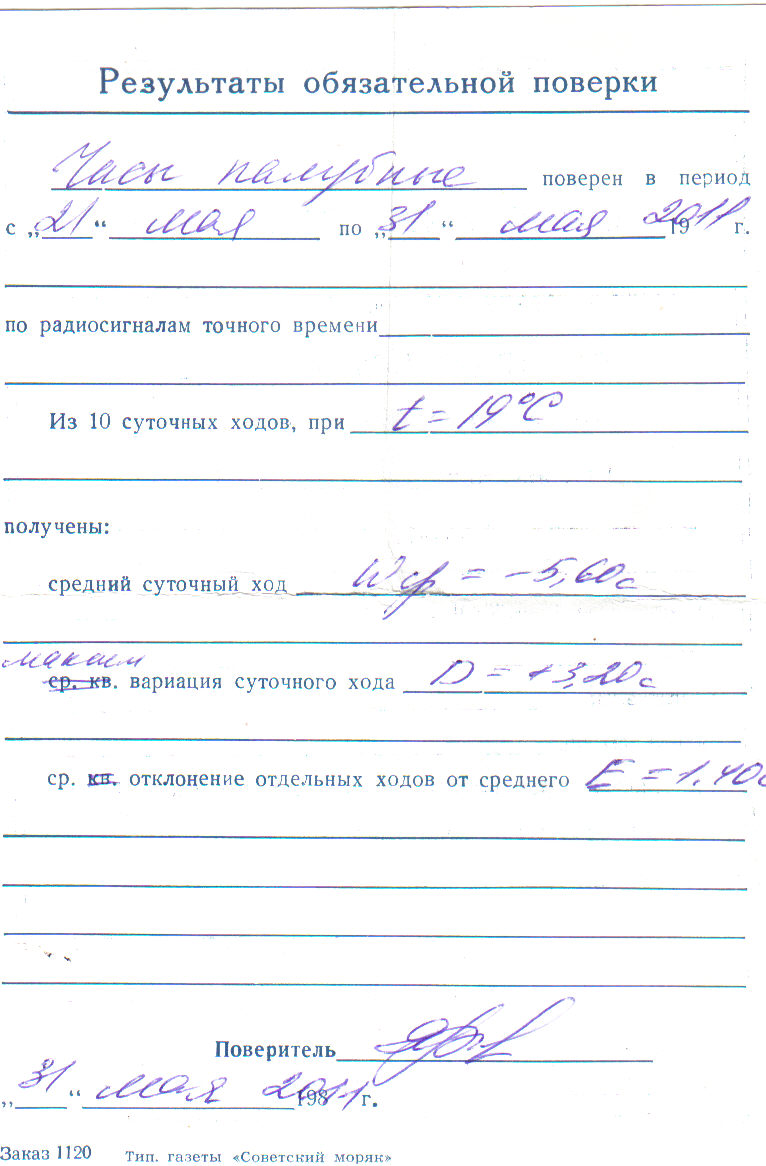 Результаты обязательной поверки
Часы палубные поверен в период
с „21“ мая по „31“ мая 19 2011 г.
по радиосигналам точного времени
Из 10 суточных ходов, при t = 19°C
получены:
средний суточный ход Wср = -5,60с
максим
ср. кв. вариация суточного хода D = +3,20с
ср. кв. отклонение отдельных ходов от среднего E = 1.40с
Поверитель
„31“ мая 2011 198 г.
Заказ 1120 Тип. газеты «Советский моряк»